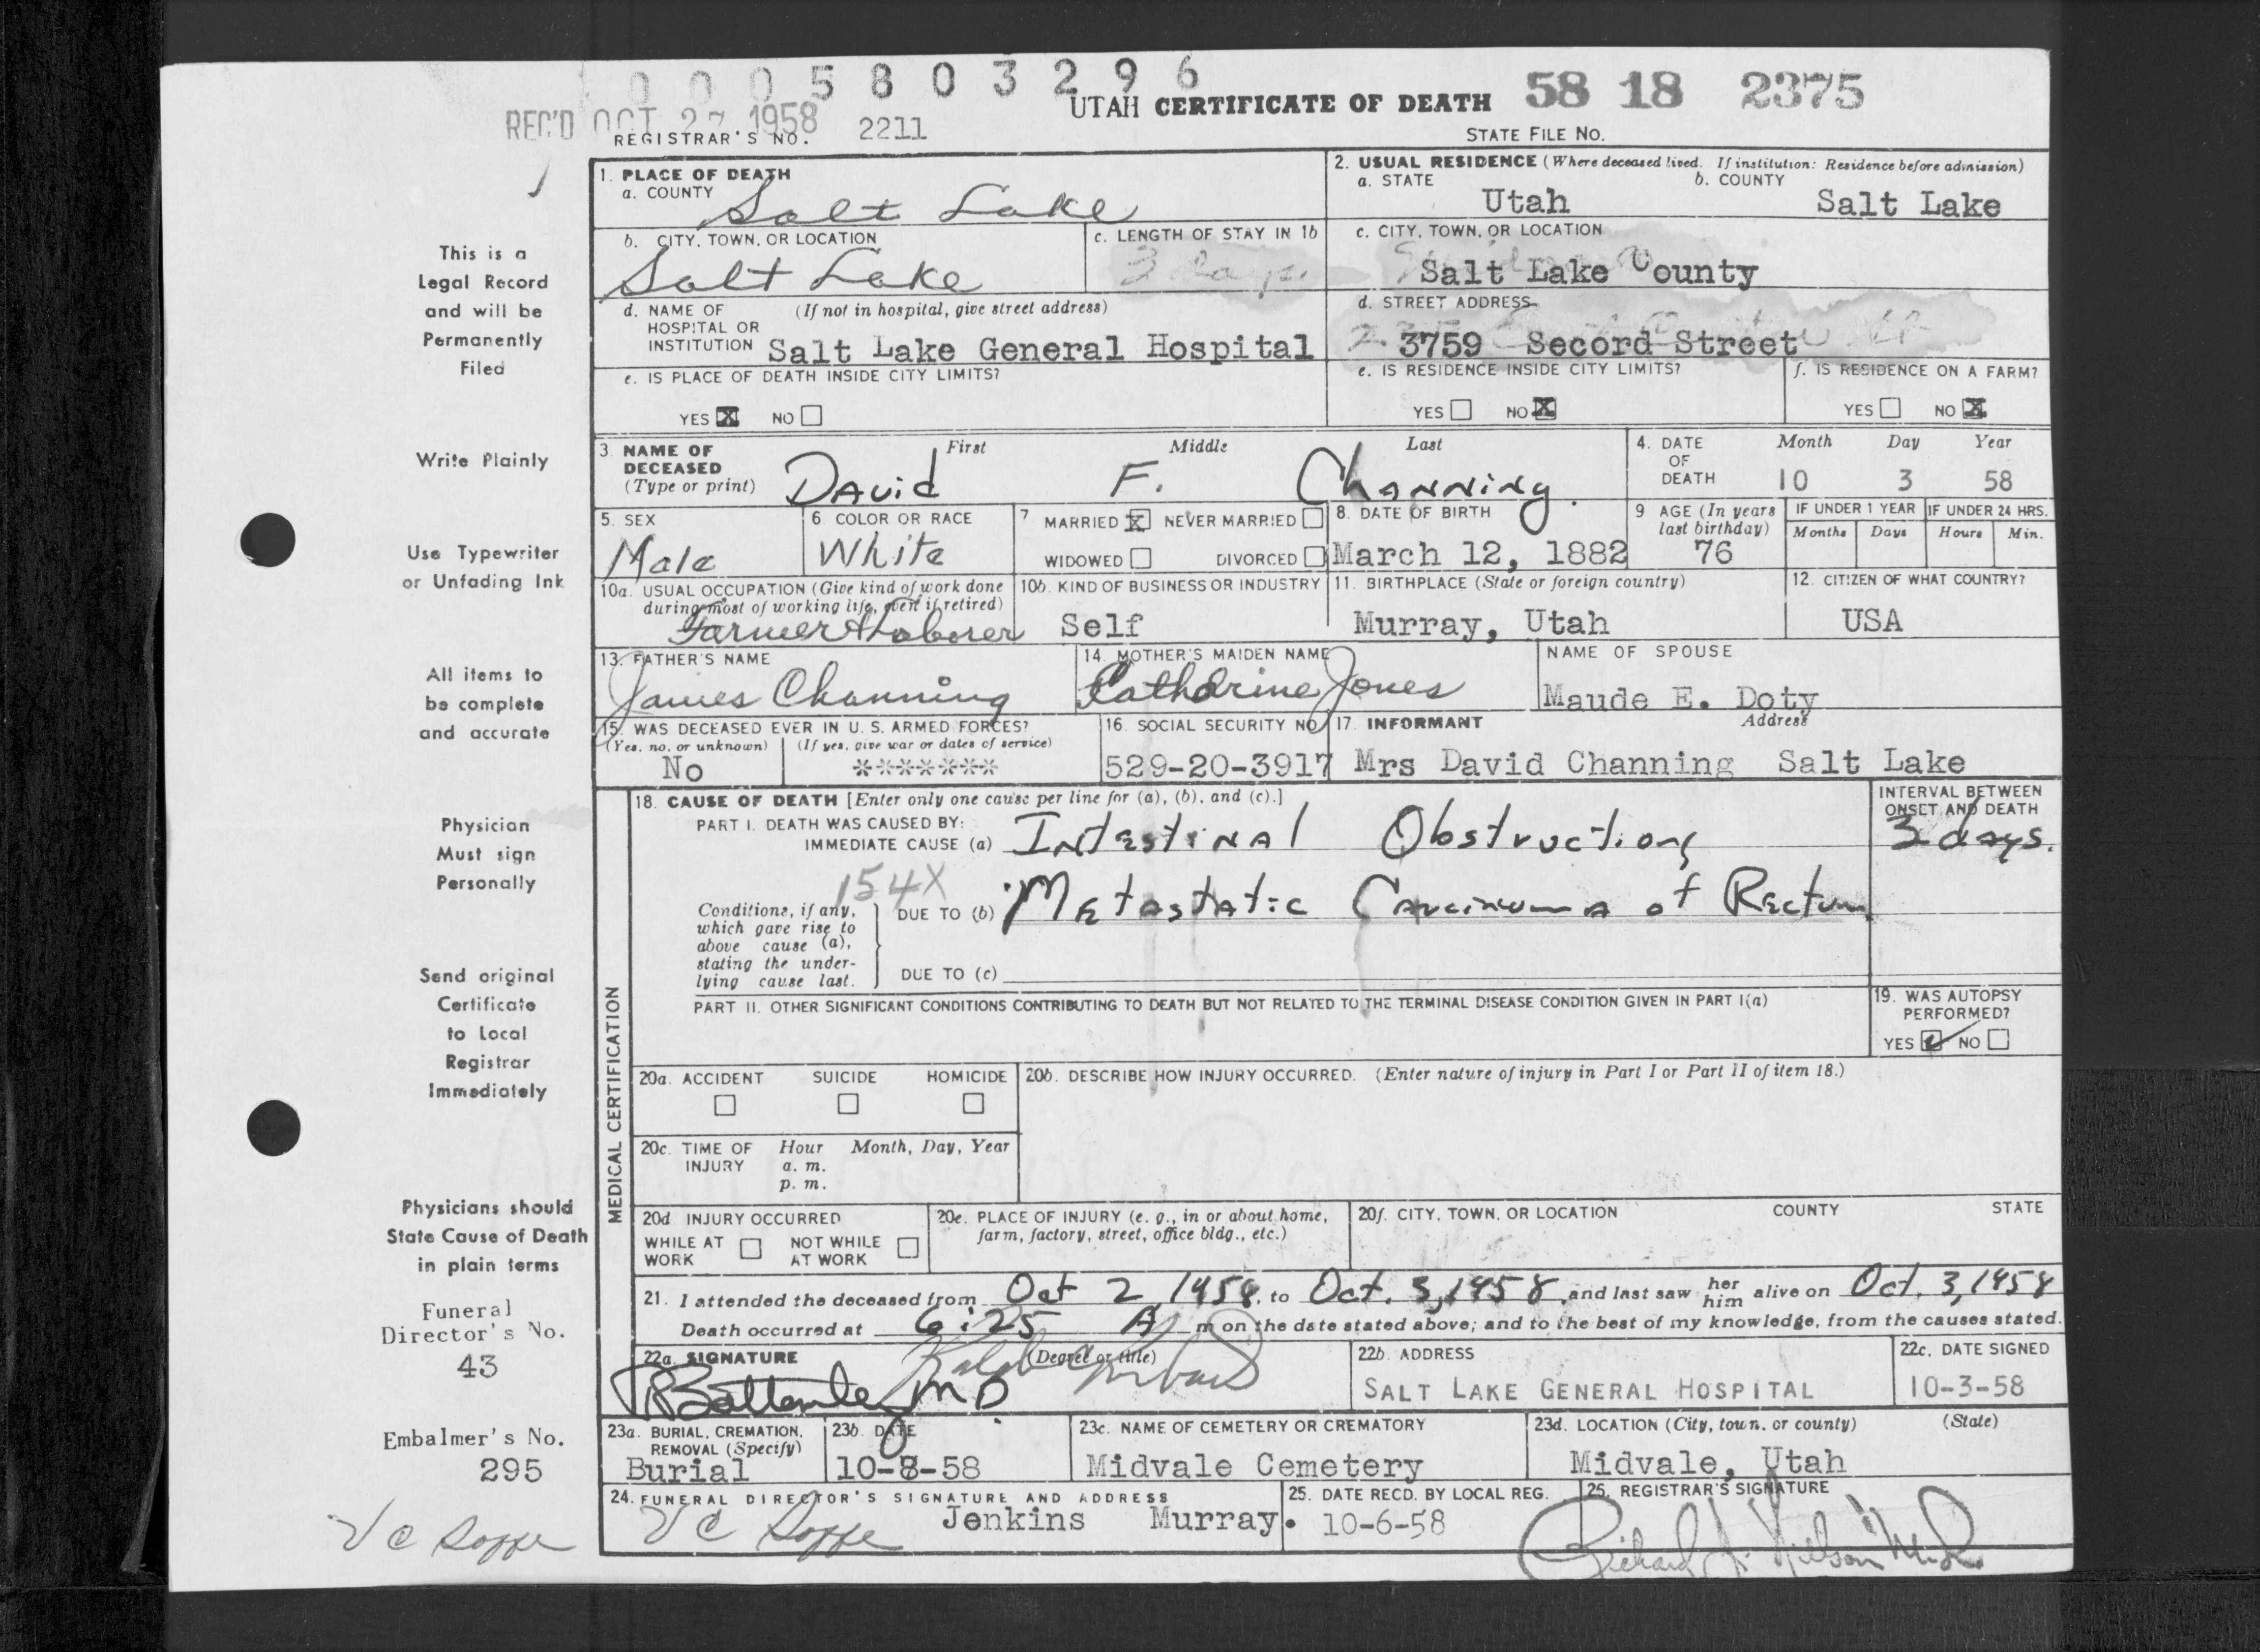 0 0 0 5 8 0 3 2 9 6
UTAH CERTIFICATE OF DEATH 58 18 2375
REC'D OCT 27 1958 2211
REGISTRAR'S NO. STATE FILE NO.
1. PLACE OF DEATH
a. COUNTY Salt Lake
2. USUAL RESIDENCE (Where deceased lived. If institution: Residence before admission)
a. STATE Utah b. COUNTY Salt Lake
b. CITY, TOWN, OR LOCATION Salt Lake
c. LENGTH OF STAY IN 1b 3 days
c. CITY, TOWN, OR LOCATION Salt Lake County
d. NAME OF HOSPITAL OR INSTITUTION (If not in hospital, give street address) Salt Lake General Hospital
d. STREET ADDRESS 3759 Secord Street
e. IS PLACE OF DEATH INSIDE CITY LIMITS?
YES X NO
e. IS RESIDENCE INSIDE CITY LIMITS?
YES NO X
f. IS RESIDENCE ON A FARM?
YES NO X
3. NAME OF DECEASED (Type or print) First Middle Last
David F. Channing
4. DATE OF DEATH Month Day Year
10 3 58
5. SEX Male
6. COLOR OR RACE White
7 MARRIED X NEVER MARRIED
WIDOWED DIVORCED
8. DATE OF BIRTH March 12, 1882
9 AGE (In years last birthday) 76
IF UNDER 1 YEAR Months Days
IF UNDER 24 HRS. Hours Min.
10a. USUAL OCCUPATION (Give kind of work done during most of working life, even if retired) Farmer & Laborer
10b. KIND OF BUSINESS OR INDUSTRY Self
11. BIRTHPLACE (State or foreign country) Murray, Utah
12. CITIZEN OF WHAT COUNTRY? USA
13. FATHER'S NAME James Channing
14. MOTHER'S MAIDEN NAME Catherine Jones
NAME OF SPOUSE Maude E. Doty
15. WAS DECEASED EVER IN U. S. ARMED FORCES?
(Yes, no, or unknown) No
(If yes, give war or dates of service) *******
16. SOCIAL SECURITY NO 529-20-3917
17. INFORMANT Address
Mrs David Channing Salt Lake
MEDICAL CERTIFICATION
18. CAUSE OF DEATH [Enter only one cause per line for (a), (b), and (c).]
INTERVAL BETWEEN ONSET AND DEATH
PART I. DEATH WAS CAUSED BY:
IMMEDIATE CAUSE (a) Intestinal Obstruction 3 days.
154X
Conditions, if any, which gave rise to above cause (a), stating the underlying cause last.
DUE TO (b) Metastatic Carcinoma of Rectum
DUE TO (c)
PART II. OTHER SIGNIFICANT CONDITIONS CONTRIBUTING TO DEATH BUT NOT RELATED TO THE TERMINAL DISEASE CONDITION GIVEN IN PART I(a)
19. WAS AUTOPSY PERFORMED?
YES ✓ NO
20a. ACCIDENT SUICIDE HOMICIDE
20b. DESCRIBE HOW INJURY OCCURRED. (Enter nature of injury in Part I or Part II of item 18.)
20c. TIME OF INJURY Hour Month, Day, Year
a. m.
p. m.
20d INJURY OCCURRED
WHILE AT WORK NOT WHILE AT WORK
20e. PLACE OF INJURY (e. g., in or about home, farm, factory, street, office bldg., etc.)
20f. CITY, TOWN, OR LOCATION COUNTY STATE
21. I attended the deceased from Oct 2, 1958, to Oct. 3, 1958, and last saw her him alive on Oct. 3, 1958
Death occurred at 6:25 A m on the date stated above; and to the best of my knowledge, from the causes stated.
22a. SIGNATURE (Degree or title)
MD
22b. ADDRESS SALT LAKE GENERAL HOSPITAL
22c. DATE SIGNED 10-3-58
23a. BURIAL, CREMATION, REMOVAL (Specify) Burial
23b. DATE 10-8-58
23c. NAME OF CEMETERY OR CREMATORY Midvale Cemetery
23d. LOCATION (City, town, or county) (State) Midvale, Utah
24. FUNERAL DIRECTOR'S SIGNATURE AND ADDRESS
Jenkins Murray.
25. DATE RECD. BY LOCAL REG. 10-6-58
26. REGISTRAR'S SIGNATURE
This is a
Legal Record
and will be
Permanently
Filed
Write Plainly
Use Typewriter
or Unfading Ink
All items to
be complete
and accurate
Physician
Must sign
Personally
Send original
Certificate
to Local
Registrar
Immediately
Physicians should
State Cause of Death
in plain terms
Funeral
Director's No.
43
Embalmer's No.
295